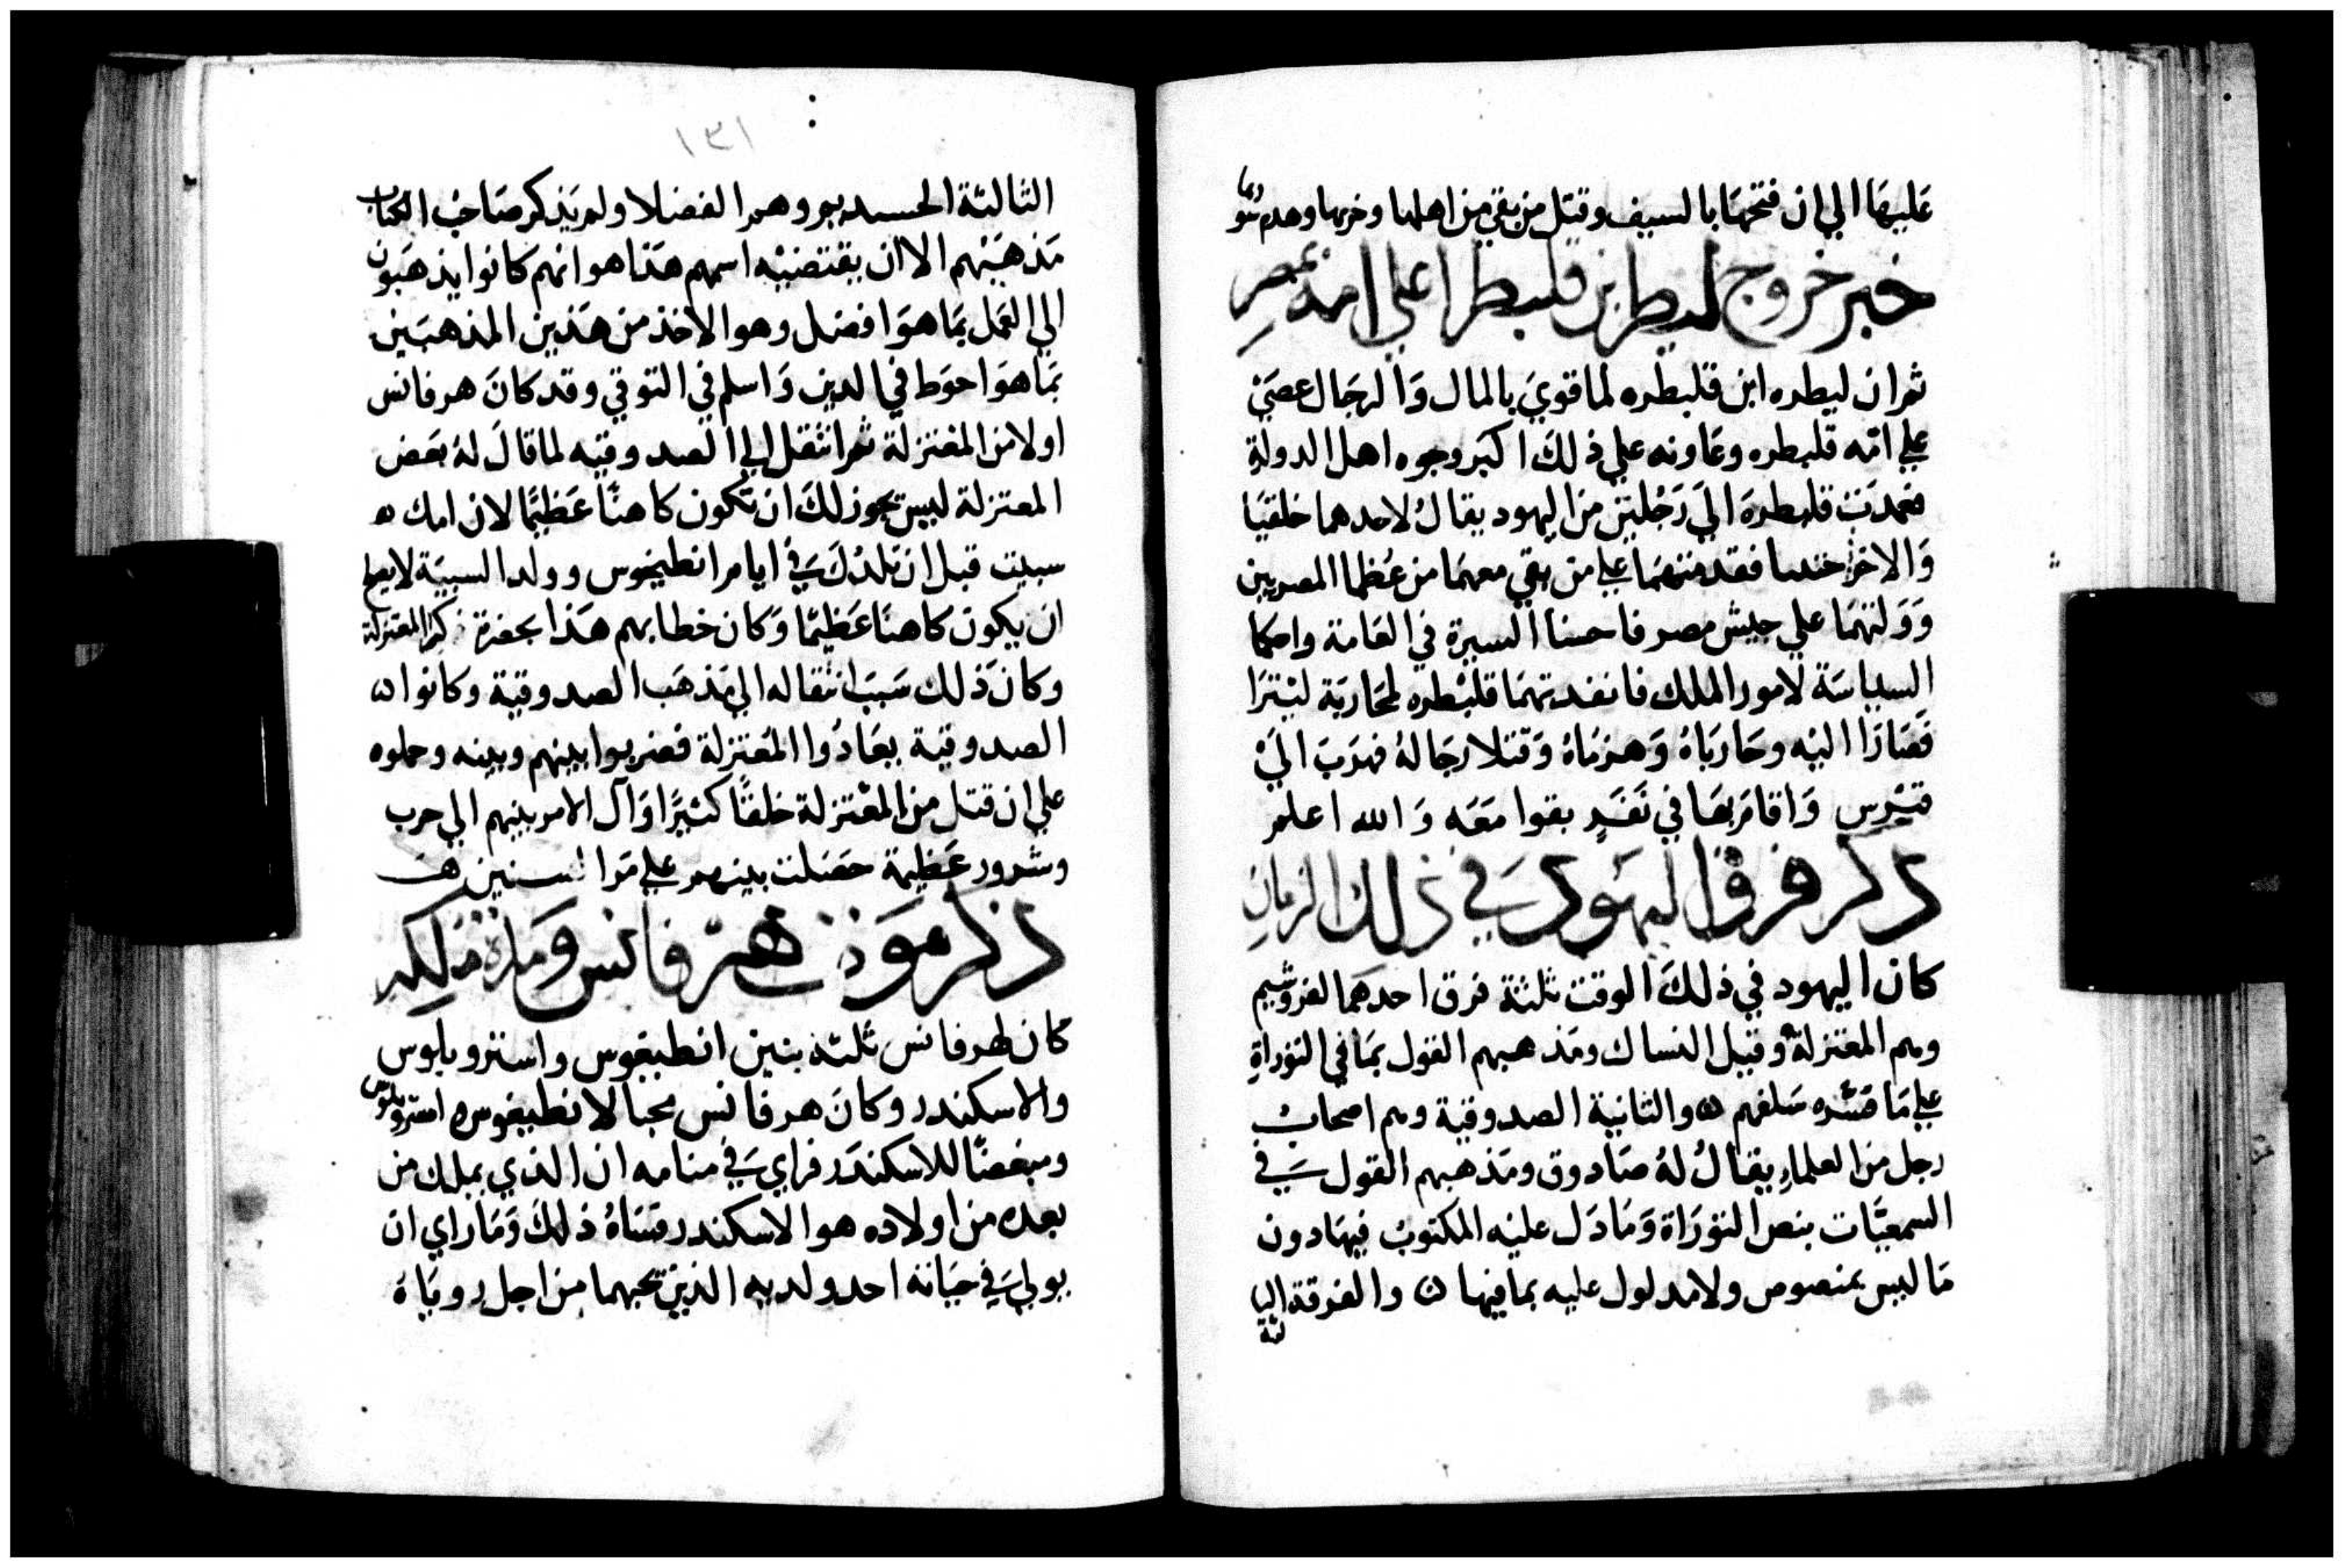 عَليهَا الي ان فتحهَا بالسيف وقتل من بقي من اهلها وخربها وهدم سورها
خبر خروج ليطر ابن قلبطرا علي امه بمصر
ثم ان ليطره ابن قلبطره لما قويَ بالمال وَالرجَال عصَيَ
علي امّه قلبطره وعَاونه علي ذلكَ اكبر وجوه اهل الدولة
فعمدَت قلبطرهَ اليَ رَجُليَن منَ اليهود يقالُ لاحدهما خلقيَا
وَالاخر حننيا فقدمتهمَا علي من بقي معهمَا من عُظما المصريين
وَوَلتهمَا علي جيش مصر فاحسنا السيرة في العَامة واحكما
السياسَة لامور الملك فانفدتهمَا قلبْطره لمحَاربَة ليْترَا
فَصَارَا اليْه وحَاربَاهُ وَهزمَاهُ وَقتلا رجَالهُ فهرَبَ اليَ
قبرس وَاقامَ بهَا في نَفَرٍ بقوا مَعَه وَالله اعلم
ذكر فرق اليهود في ذلك الزمان
كان اليهود في ذلكَ الوقت ثلثة فرق احدهمَا لفروشيم
وهم المعتزلة وقيل النساك ومَذهبهم القول بمَا في التوراةِ
علي مَا فسَّره سَلفهم ۞ والثانية الصدوقية وهم اصحاب
رجل من العلماء يقالُ لهُ صَادوق ومَذهبهم القول في
السمعيَّات بنص التوَرَاة وَمَا دَل عليْه المكتوبُ فيهَا دون
مَا ليس بمنصوص ولا مدلول عليه بما فيها ۞ والفرقة الثا
لثة
١٣١
الثالثة الحسيديم وهم الفضلا ولم يَذكر صَاحبُ الكتاب
مَذهبَهم الا ان يقتضيْه اسمهم هَذا هو انهم كانوا يذهَبون
الي العَمل بمَا هوَ افضل وهو الاخذ من هَذين المذهبَين
بمَا هوَ احوَط في الدين وَاسلم في التوقي وقد كانَ هرفانس
اولا من المعتزلة ثم انتَقل الي الصدوقيه لما قالَ لهُ بعَض
المعتزلة ليسَ يجوز لكَ ان تكون كاهنًا عَظيمًا لان امك ه
سبيت قبل ان تلدكَ في ايام انطيخوس وولد السبيَة لا يصلح
ان يكون كاهنًا عَظيمًا وَكان خطابهم هَذا بحضرة المعتزلة
وكانَ ذلك سَببَ انتقاله الي مَذهَب الصدوقيَة وكانوا ۞
الصدوقية يعَادُوا المعُتزلة فضربوا بينهم وبينه وحملوه
علي ان قتل من المعْتزلة خلقًا كثيرًا وَآل الامر بينهم الي حرب
وشرور عَظيمَة حصَلت بينهم علي مَرا السنين
ذكر موت هرفانس ومدة ملكه
كان لهرفانس ثلثة بنين انطيبغوس واسترو بلوس
والاسكندر وكانَ هرفانس محبا لانطيبغوس استروبلوس
ومبغضًا للاسكندَر فراي في منامه ان الذي يملك من
بعده من اولاده هو الاسكندر فسَاهُ ذلكَ وَمَا راي ان
يولي في حيَاته احد ولديه الذين يحبهما من اجل روياهُ